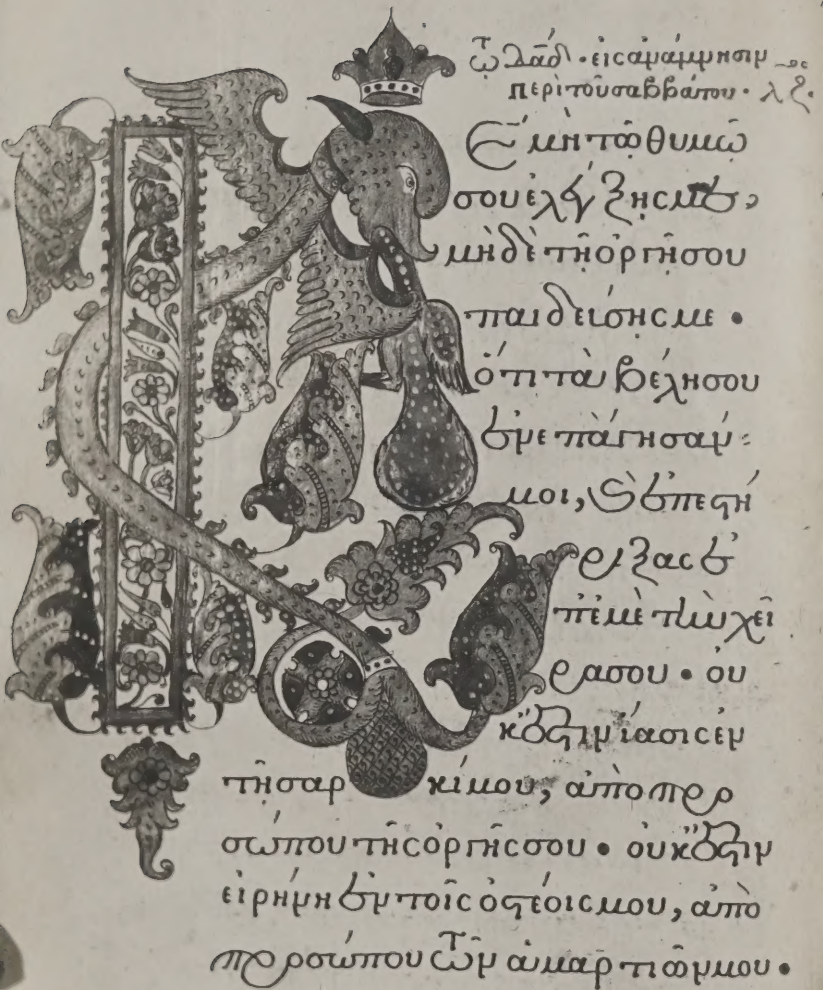 τῷ Δᾶδ · εἰς ἀνάμνησιν
περὶ τοῦ σαββάτου · λζ ·
ΚΕ μὴ τῷ θυμῶ
σου ἐλέγξης με,
μηδὲ τῆ ὀργῆ σου
παιδεύσης με ·
ὅτι τὰ βέλη σου
ἐνεπάγησάν
μοι, καὶ ἐπεστή
ριξας ἐ
π' ἐμὲ τὴν χεῖ
ρα σου · οὐ
κ ἔστιν ἴασις ἐν
τῆ σαρκί μου, ἀπὸ προ
σώπου τῆς ὀργῆς σου · οὐκ ἔστιν
εἰρήνη ἐν τοῖς ὀστέοις μου, ἀπὸ
προσώπου τῶν ἁμαρτιῶν μου ·